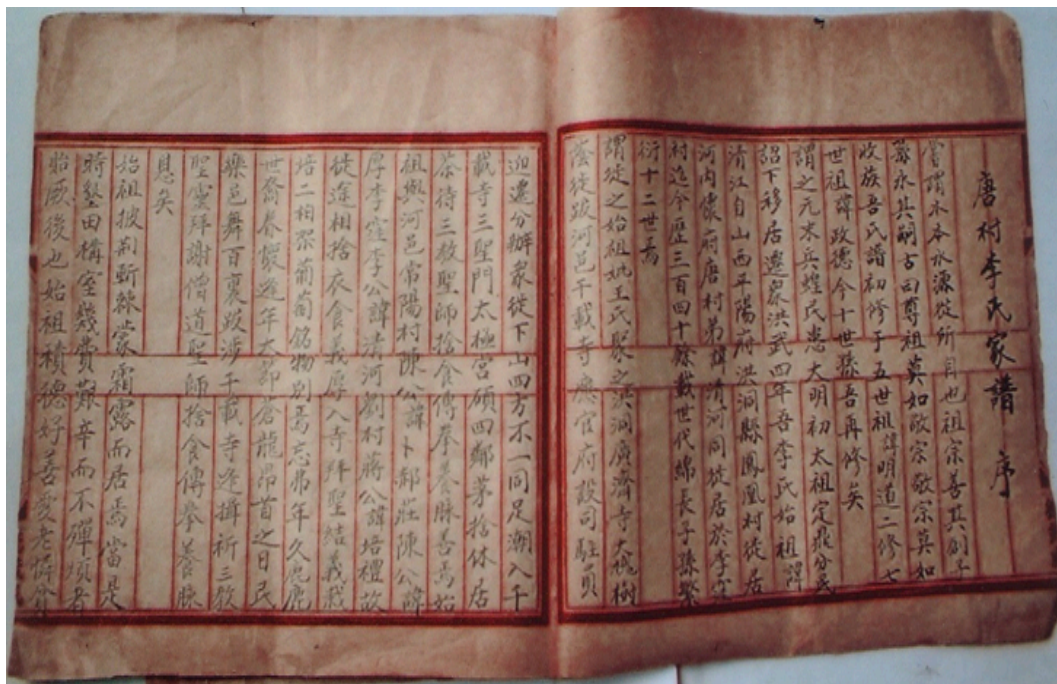 唐村李氏家譜序
嘗謂木本水源從所自也祖宗善其創子
孫永其嗣古曰尊祖莫如敬宗敬宗莫如
收族吾氏譜初修于五世祖諱明道二修七
世祖諱政德今十世孫吾再修矣
謂之元末兵蝗民患大明初太祖定鼎分民
詔下移居遷眾洪武四年吾李氏始祖諱
清江自山西平陽府洪洞縣鳳凰村徙居
河內懷府唐村弟諱清河同徙居於李窪
村迄今歷三百四十餘載世代綿長子孫繁
衍十二世焉
謂徙之始祖妣王氏聚之洪洞廣濟寺大槐樹
蔭徙跋河邑千載寺應官府設司駐員
迎遷分辦眾徙下山四方不一同足潮入千
載寺三聖門太極宮碩四鄰茅捨休居
茶待三教聖師捨食傳拳養脈善焉始
祖與河邑常陽村陳公諱卜郝莊陳公諱
厚李窪李公諱清河劉村蔣公諱培禮故
徙途相捨衣食義厚入寺拜聖結義栽
培二柏架葡萄銘物別焉忘弗年久鹿鹿
世裔眷懷逢年大節倉龍昂首之日民
樂邑舞百裏跋涉千載寺逄攝祈三教
聖靈拜謝僧道聖師捨食傳拳養脈
息矣
始祖披荊斬棘蒙霜露而居焉當是
時墾田構室幾費艱辛而不殫煩者
貽厥後也始祖積德好善愛老憐貧